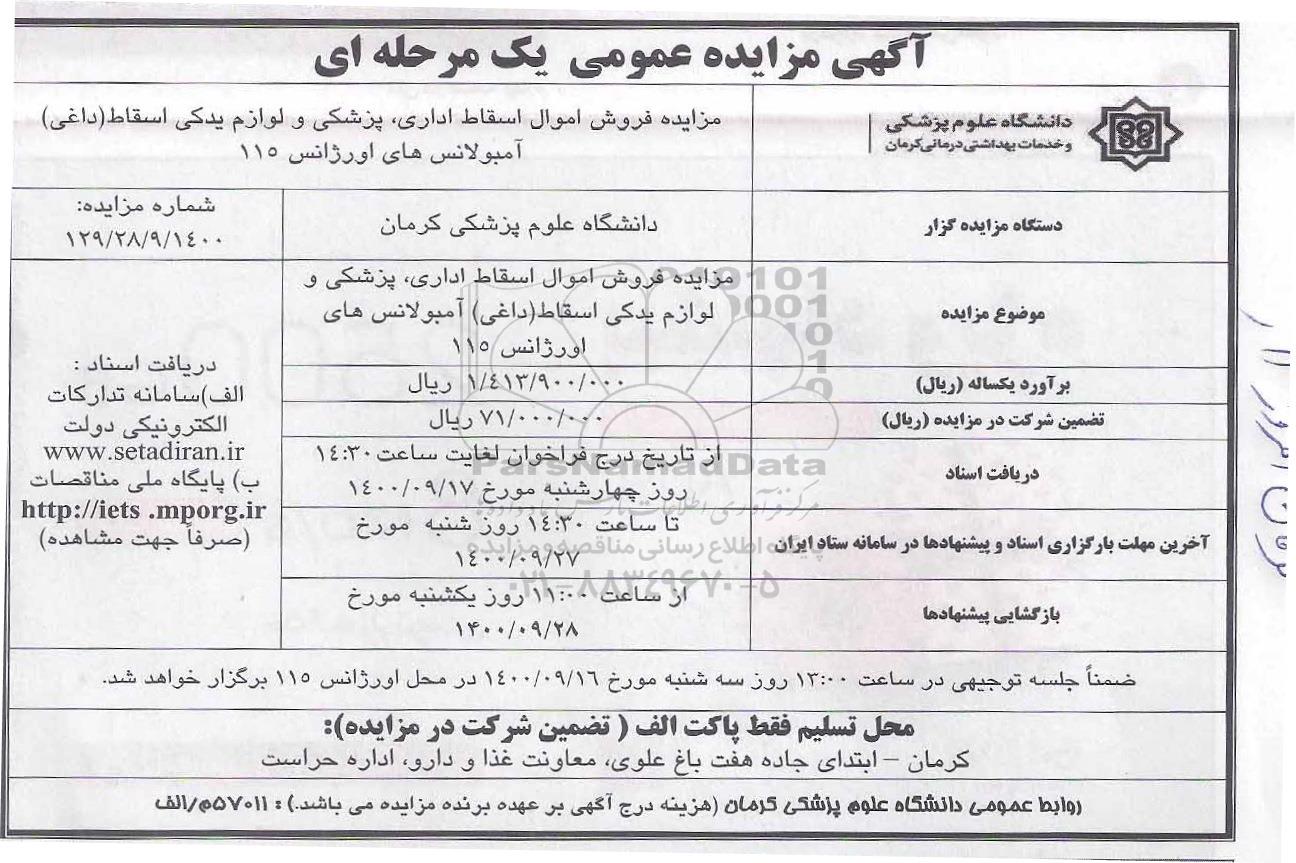 آگهی مزایده عمومی یک مرحله ای
دانشگاه علوم پزشکی
و خدمات بهداشتی درمانی کرمان
مزایده فروش اموال اسقاط اداری، پزشکی و لوازم یدکی اسقاط(داغی)
آمبولانس های اورژانس ۱۱۵
دستگاه مزایده گزار
دانشگاه علوم پزشکی کرمان
شماره مزایده:
۱۲۹/۲۸/۹/۱٤۰۰
موضوع مزایده
مزایده فروش اموال اسقاط اداری، پزشکی و
لوازم یدکی اسقاط(داغی) آمبولانس های
اورژانس ۱۱۵
برآورد یکساله (ریال)
۱/٤۱۳/۹۰۰/۰۰۰ ریال
تضمین شرکت در مزایده (ریال)
۷۱/۰۰۰/۰۰۰ ریال
دریافت اسناد
از تاریخ درج فراخوان لغایت ساعت ۱٤:۳۰
روز چهارشنبه مورخ ۱٤۰۰/۰۹/۱۷
آخرین مهلت بارگزاری اسناد و پیشنهادها در سامانه ستاد ایران
تا ساعت ۱٤:۳۰ روز شنبه مورخ
۱٤۰۰/۰۹/۲۷
بازگشایی پیشنهادها
از ساعت ۱۱:۰۰ روز یکشنبه مورخ
۱۴۰۰/۰۹/۲۸
دریافت اسناد :
الف)سامانه تدارکات
الکترونیکی دولت
www.setadiran.ir
ب) پایگاه ملی مناقصات
http://iets .mporg.ir
(صرفاً جهت مشاهده)
ضمناً جلسه توجیهی در ساعت ۱۳:۰۰ روز سه شنبه مورخ ۱٤۰۰/۰۹/۱٦ در محل اورژانس ۱۱۵ برگزار خواهد شد.
محل تسلیم فقط پاکت الف ( تضمین شرکت در مزایده):
کرمان – ابتدای جاده هفت باغ علوی، معاونت غذا و دارو، اداره حراست
روابط عمومی دانشگاه علوم پزشکی کرمان (هزینه درج آگهی بر عهده برنده مزایده می باشد.) : ۵۷۰۱۱م/الف
ParsNamadData
مرکز فرآوری اطلاعات پارس نماد داده ها
پایگاه اطلاع رسانی مناقصه و مزایده
۰۲۱-۸۸۳٤۹٦۷۰-۵